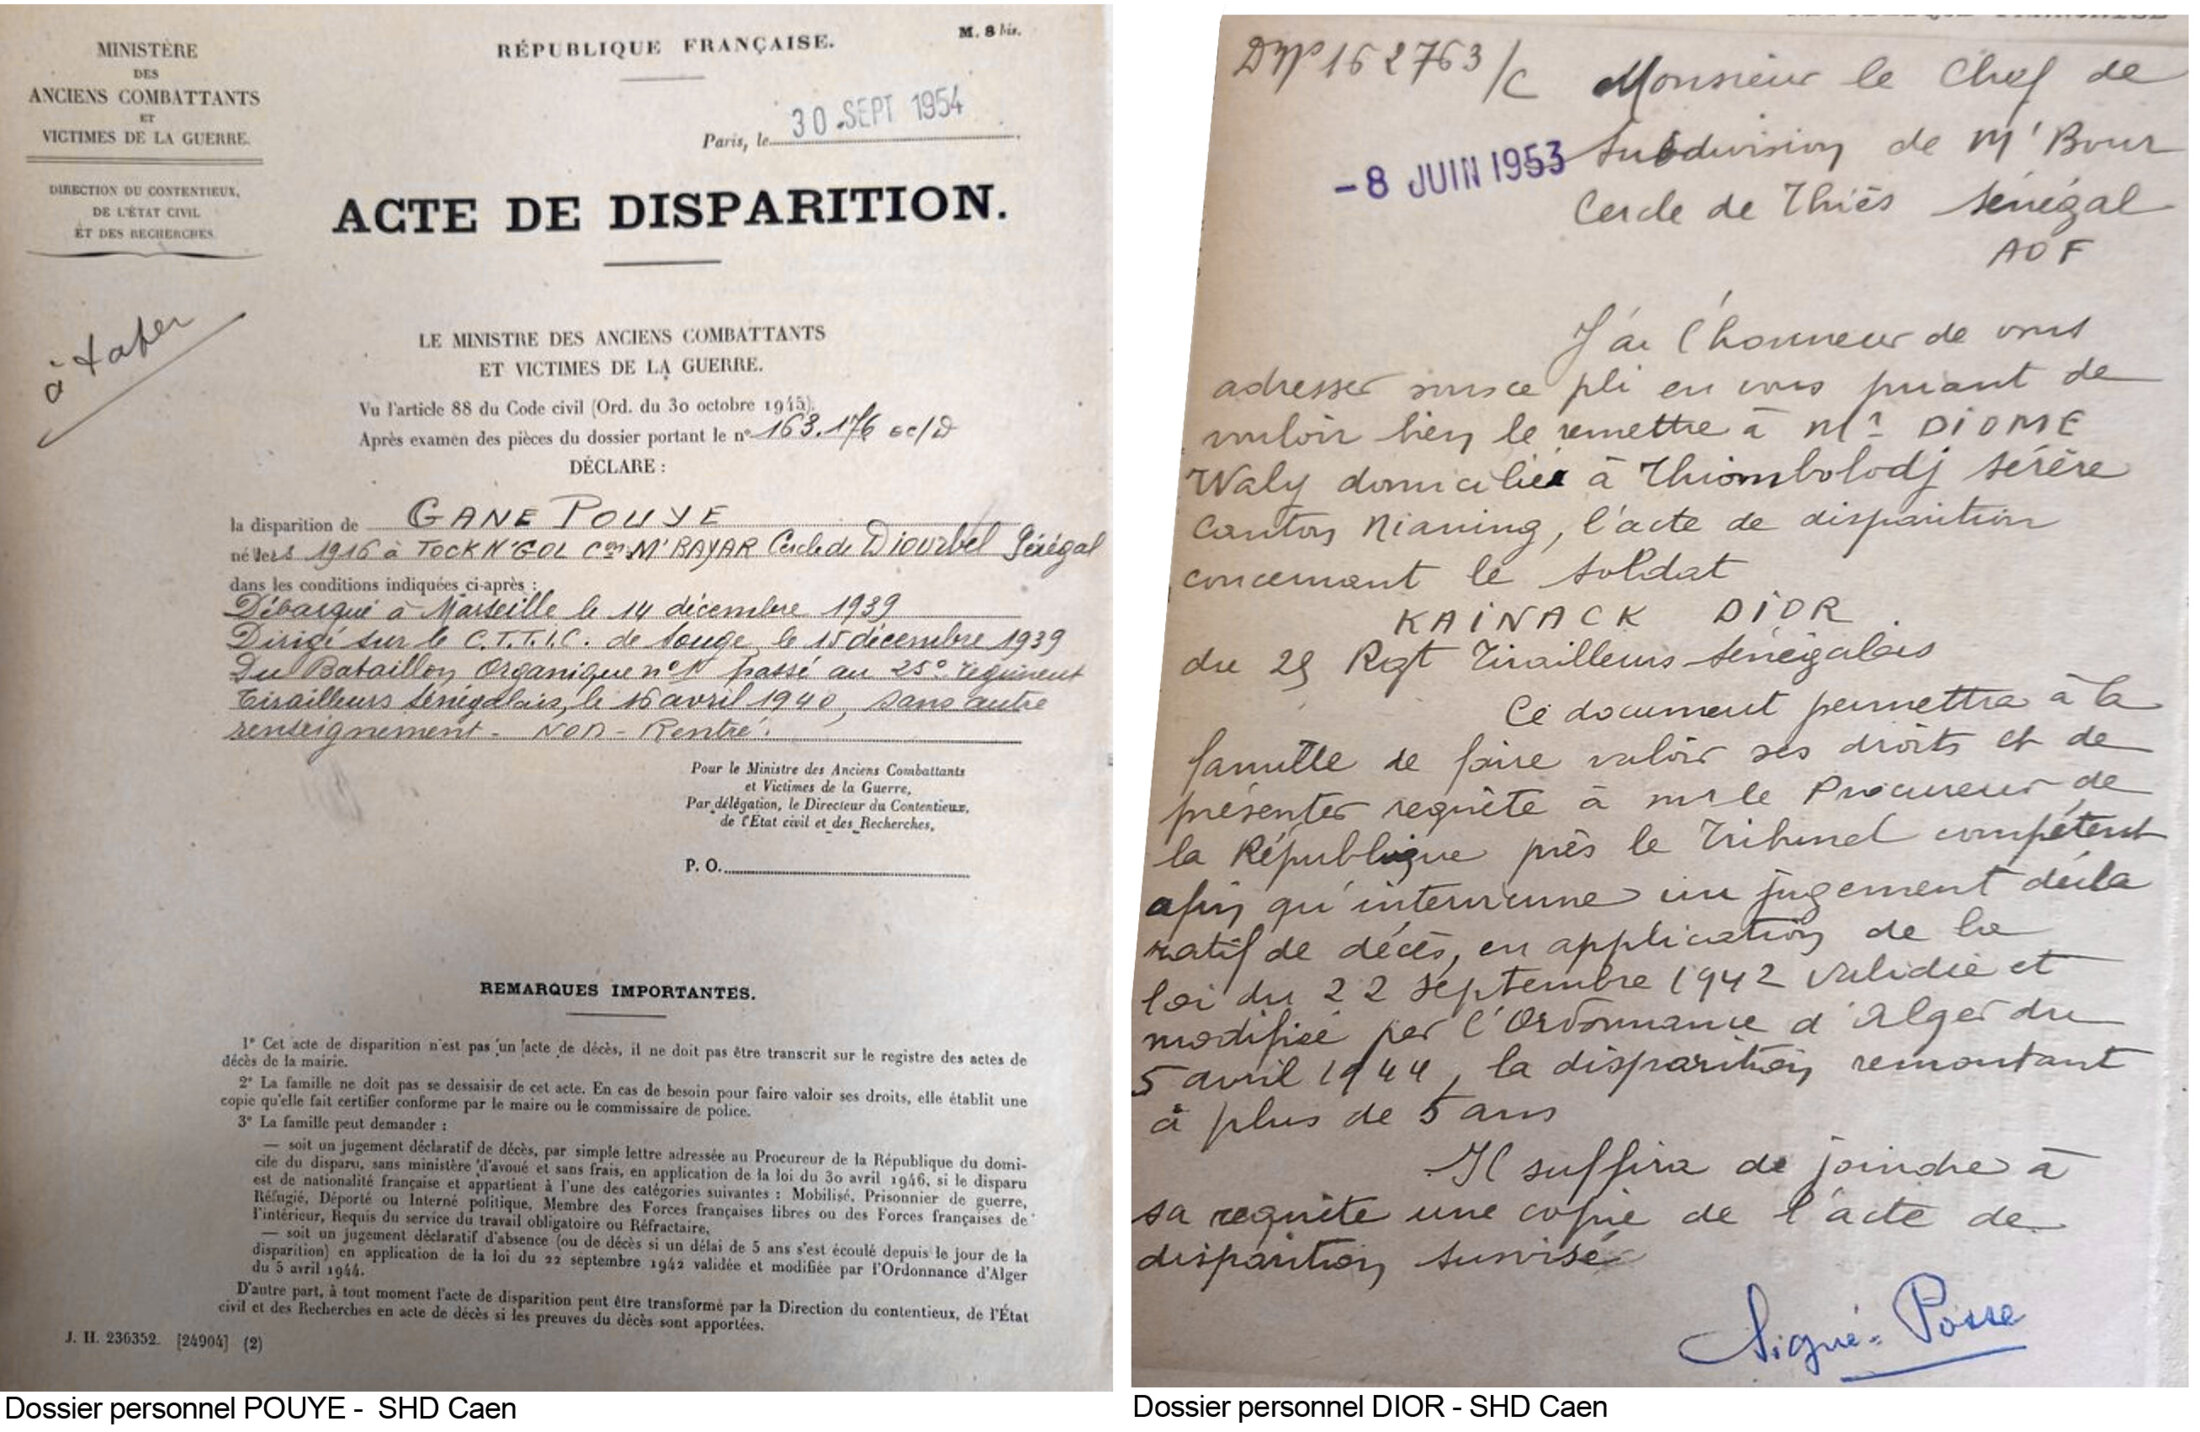 MINISTÈRE
DES
ANCIENS COMBATTANTS
ET
VICTIMES DE LA GUERRE.
DIRECTION DU CONTENTIEUX,
DE L'ÉTAT CIVIL
ET DES RECHERCHES
RÉPUBLIQUE FRANÇAISE.
M. 8 bis.
Paris, le 30 SEPT 1954
ACTE DE DISPARITION.
à taper
LE MINISTRE DES ANCIENS COMBATTANTS
ET VICTIMES DE LA GUERRE.
Vu l'article 88 du Code civil (Ord. du 30 octobre 1945).
Après examen des pièces du dossier portant le n° 163.176
DÉCLARE :
la disparition de GANE POUYE
né vers 1916 à TOCK N'GOL Con M'BAYAR Cercle de Diourbel Sénégal
dans les conditions indiquées ci-après :
Débarqué à Marseille le 14 décembre 1939
Dirigé sur le C.T.T.I.C. de Souge le 15 décembre 1939
Du Bataillon Organique n° 1 passé au 25e régiment
Tirailleurs Sénégalais, le 16 avril 1940, sans autre
renseignement - NON - Rentré.
Pour le Ministre des Anciens Combattants
et Victimes de la Guerre,
Par délégation, le Directeur du Contentieux,
de l'État civil et des Recherches,
P. O.
REMARQUES IMPORTANTES.
1° Cet acte de disparition n'est pas un acte de décès, il ne doit pas être transcrit sur le registre des actes de
décès de la mairie.
2° La famille ne doit pas se dessaisir de cet acte. En cas de besoin pour faire valoir ses droits, elle établit une
copie qu'elle fait certifier conforme par le maire ou le commissaire de police.
3° La famille peut demander :
— soit un jugement déclaratif de décès, par simple lettre adressée au Procureur de la République du domi-
cile du disparu, sans ministère d'avoué et sans frais, en application de la loi du 30 avril 1946, si le disparu
est de nationalité française et appartient à l'une des catégories suivantes : Mobilisé, Prisonnier de guerre,
Réfugié, Déporté ou Interné politique, Membre des Forces françaises libres ou des Forces françaises de
l'intérieur, Requis du service du travail obligatoire ou Réfractaire,
— soit un jugement déclaratif d'absence (ou de décès si un délai de 5 ans s'est écoulé depuis le jour de la
disparition) en application de la loi du 22 septembre 1942 validée et modifiée par l'Ordonnance d'Alger
du 5 avril 1944.
D'autre part, à tout moment l'acte de disparition peut être transformé par la Direction du contentieux, de l'État
civil et des Recherches en acte de décès si les preuves du décès sont apportées.
J. H. 236352. [24904] (2)
Dossier personnel POUYE - SHD Caen
162763/C
Monsieur le Chef de
Subdivision de M'Bour
-8 JUIN 1953
Cercle de Thiès Sénégal
AOF
J'ai l'honneur de vous
adresser sous ce pli en vous priant de
vouloir bien le remettre à Mr DIOME
Waly domicilié à Thiombolodj sérère
Canton Nianing, l'acte de disparition
concernant le soldat
KAINACK DIOR
du 25 Rgt Tirailleurs Sénégalais
Ce document permettra à la
famille de faire valoir ses droits et de
présenter requête à mr le Procureur de
la République près le Tribunal compétent
afin qu'intervienne un jugement décla
ratif de décès, en application de la
loi du 22 septembre 1942 validée et
modifiée par l'Ordonnance d'Alger du
5 avril 1944, la disparition remontant
à plus de 5 ans
Il suffira de joindre à
sa requête une copie de l'acte de
disparition susvisé
Signé : Posse
Dossier personnel DIOR - SHD Caen